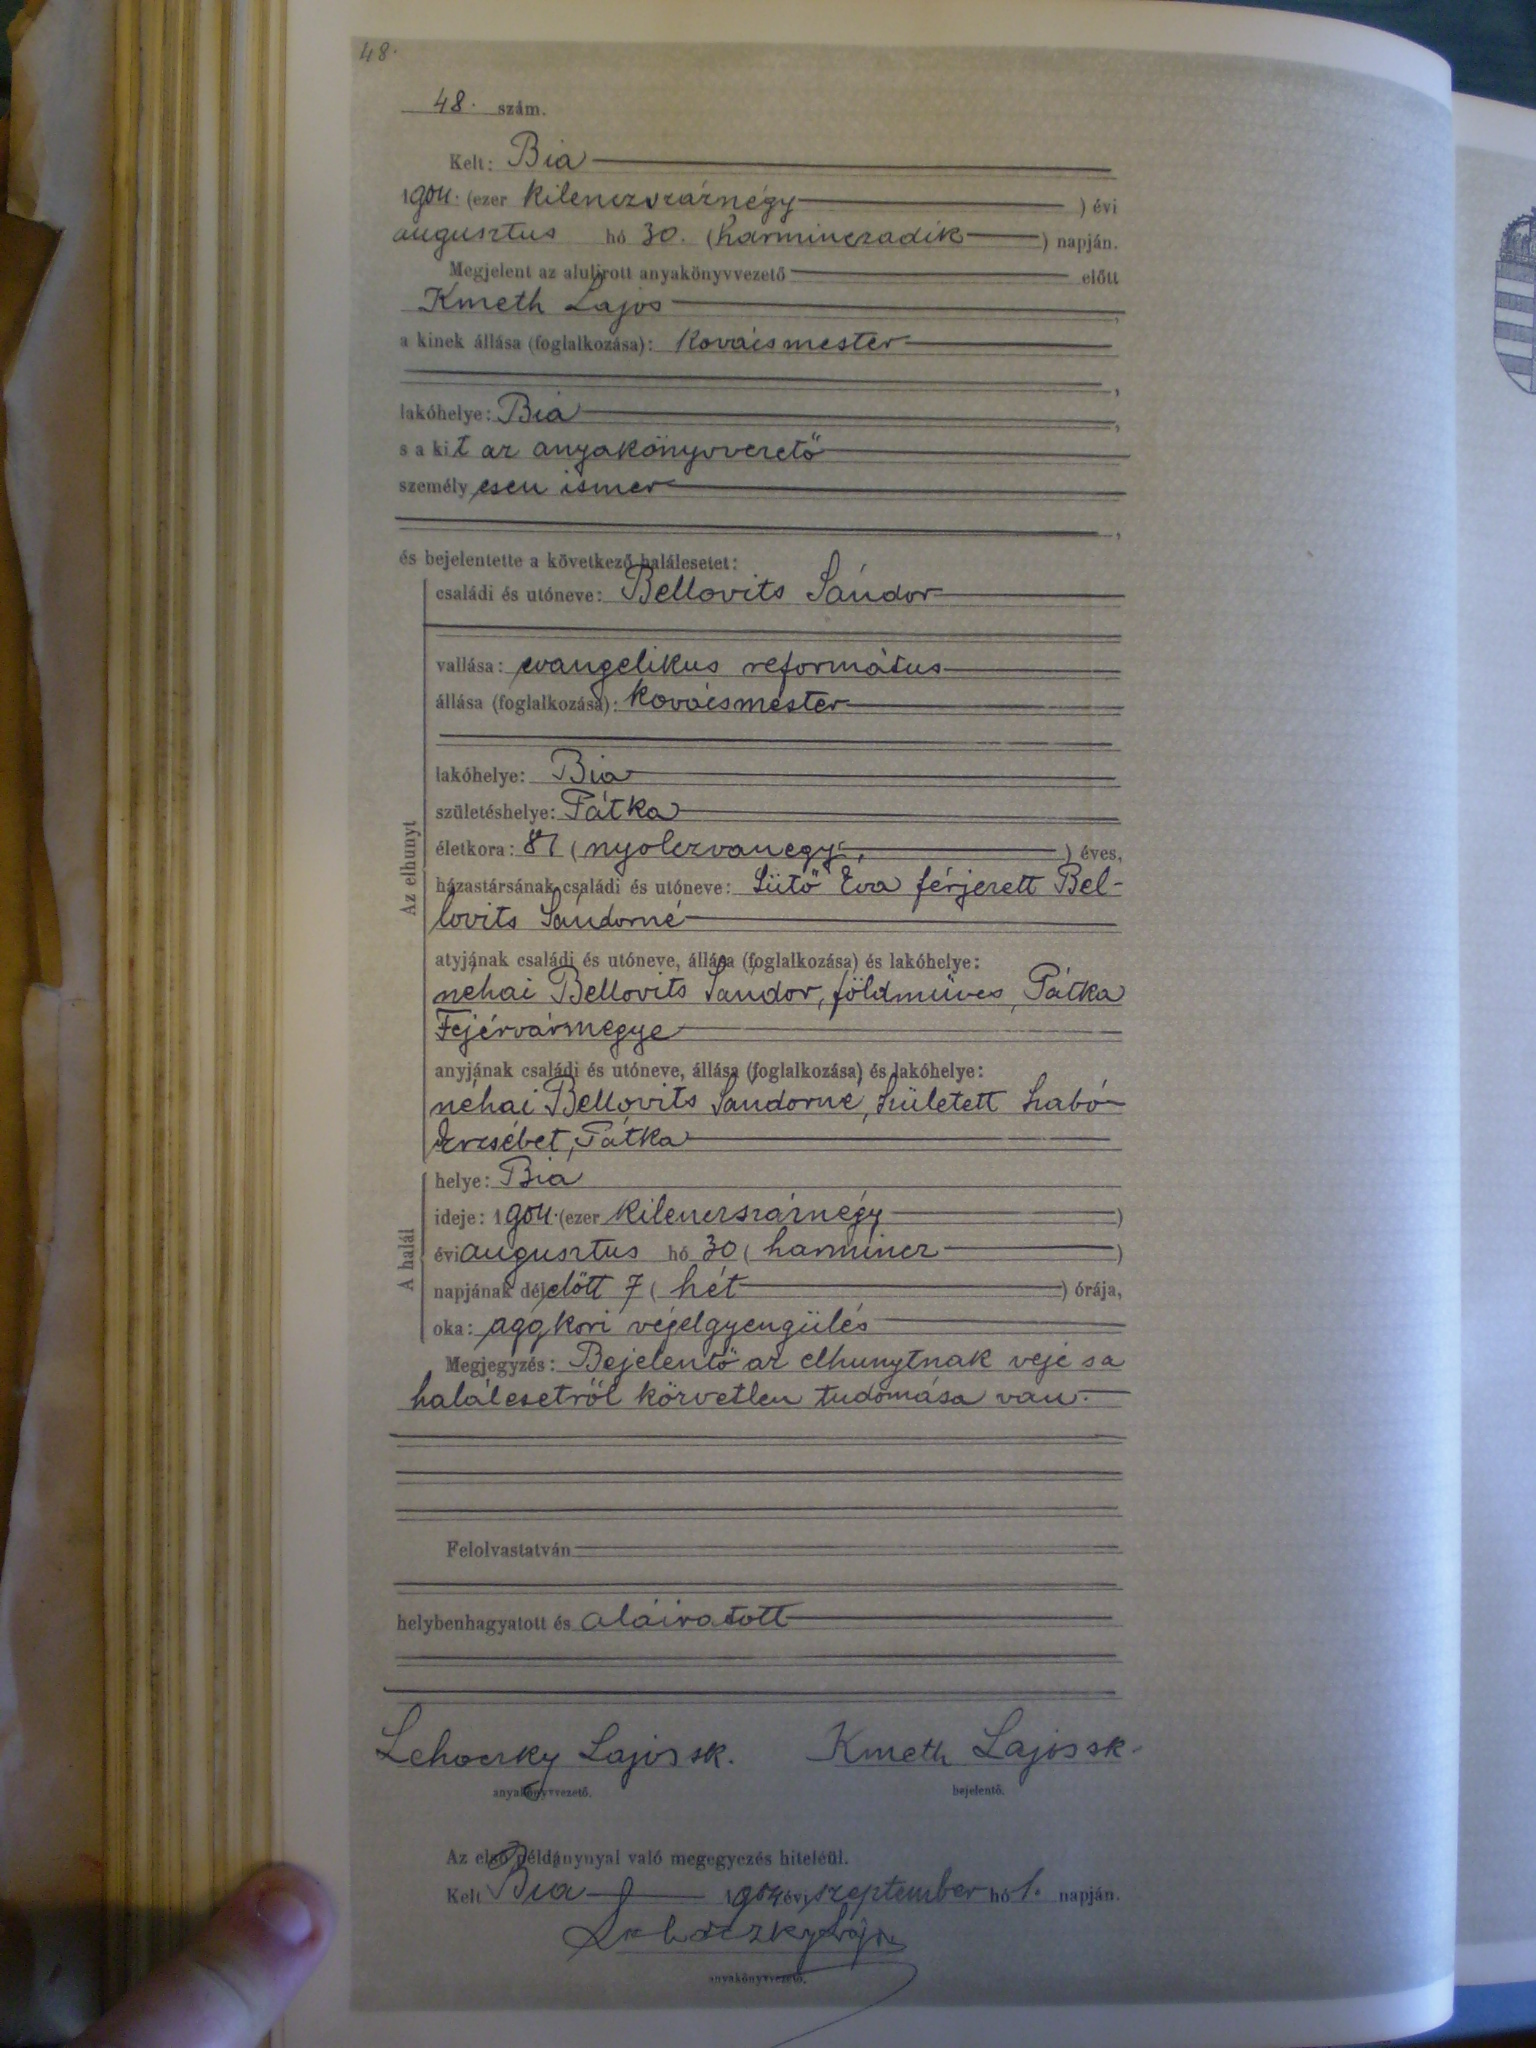 48.
48. szám.
Kelt: Bia
1904. (ezer kilenczszáznégy ) évi
augusztus hó 30. (harminczadik ) napján.
Megjelent az alulirott anyakönyvvezető előtt
Kmeth Lajos ,
a kinek állása (foglalkozása): kovácsmester
,
lakóhelye: Bia ,
s a kit az anyakönyvvezető
személyesen ismer
,
és bejelentette a következő halálesetet:
Az elhunyt
családi és utóneve: Bellovits Sándor
vallása: evangelikus református
állása (foglalkozása): kovácsmester
lakóhelye: Bia
születéshelye: Pátka
életkora: 81 (nyolczvanegy ) éves,
házastársának családi és utóneve: Sütő Éva férjezett Bel-
lovits Sándorné
atyjának családi és utóneve, állása (foglalkozása) és lakóhelye:
néhai Bellovits Sándor, földmüves, Pátka
Fejérvármegye
anyjának családi és utóneve, állása (foglalkozása) és lakóhelye:
néhai Bellovits Sándorné, született Szabó
Erzsébet, Pátka
A halál
helye: Bia
ideje: 1904. (ezer kilenczszáznégy )
évi augusztus hó 30 (harmincz )
napjának délelőtt 7 (hét ) órája,
oka: aggkori végelgyengülés
Megjegyzés: Bejelentő az elhunytnak veje s a
halálesetről közvetlen tudomása van.
Felolvastatván
helybenhagyatott és aláiratott
Lehoczky Lajos sk. Kmeth Lajos sk.
anyakönyvvezető. bejelentő.
Az első példánynyal való megegyezés hiteléül.
Kelt Bia 1904 évi szeptember hó 1. napján.
Lehoczky Lajos
anyakönyvvezető.